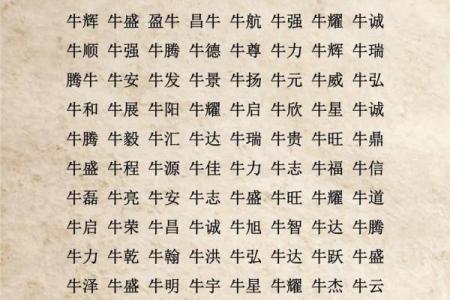 牛辉 牛盛 盈牛 昌牛 牛航 牛强 牛耀 牛诚
牛顺 牛强 牛腾 牛德 牛尊 牛力 牛辉 牛瑞
腾牛 牛安 牛发 牛景 牛扬 牛元 牛威 牛弘
牛和 牛展 牛阳 牛耀 牛启 牛欣 牛星 牛诚
牛腾 牛毅 牛汇 牛达 牛瑞 牛贵 牛旺 牛鼎
牛盛 牛程 牛源 牛佳 牛力 牛志 牛福 牛信
牛磊 牛亮 牛安 牛志 牛盛 牛旺 牛耀 牛道
牛启 牛荣 牛昌 牛诚 牛旭 牛智 牛达 牛腾
牛力 牛乾 牛翰 牛洪 牛弘 牛达 牛跃 牛盛
牛泽 牛盛 牛明 牛宇 牛星 牛耀 牛杰 牛云